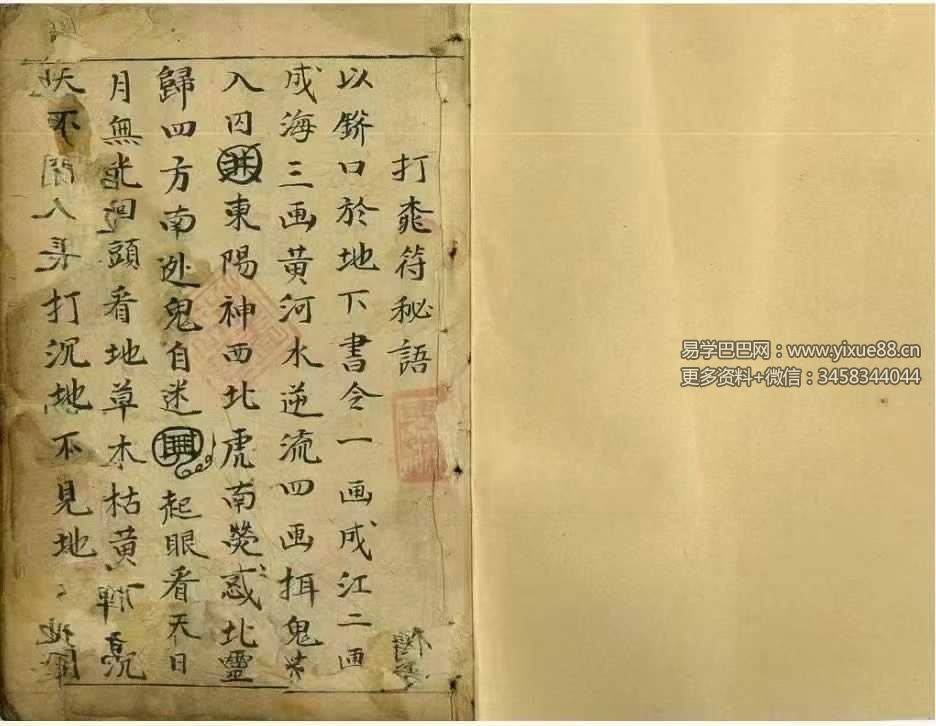 打 符秘語
以 口於地下書令一画成江二画
成海三画黄河水逆流四画 鬼
入囚 東陽神西北虎南熒惑北靈
歸四方南 鬼自迷 起眼看天日
月無光回頭看地草木枯黄
不 人 打沉地不見地
易学巴巴网：www.yixue88.cn
更多资料+微信：3458344044